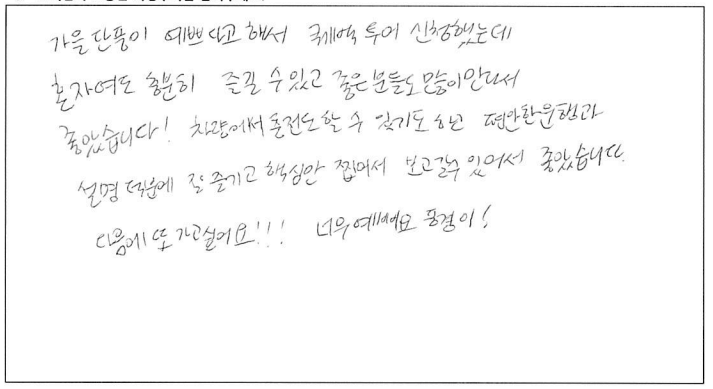 가을 단풍이 예쁘다고 해서 퀘벡 투어 신청했는데
혼자여도 충분히 즐길 수 있고 좋은분들도 많이만나서
좋았습니다! 차량에서 충전도 할 수 있기도 하고 편안한운행과
설명 덕분에 잘 즐기고 핵심만 찝어서 보고갈수 있어서 좋았습니다.
다음에 또 가고싶어요!!! 너무예뻐요 풍경이!